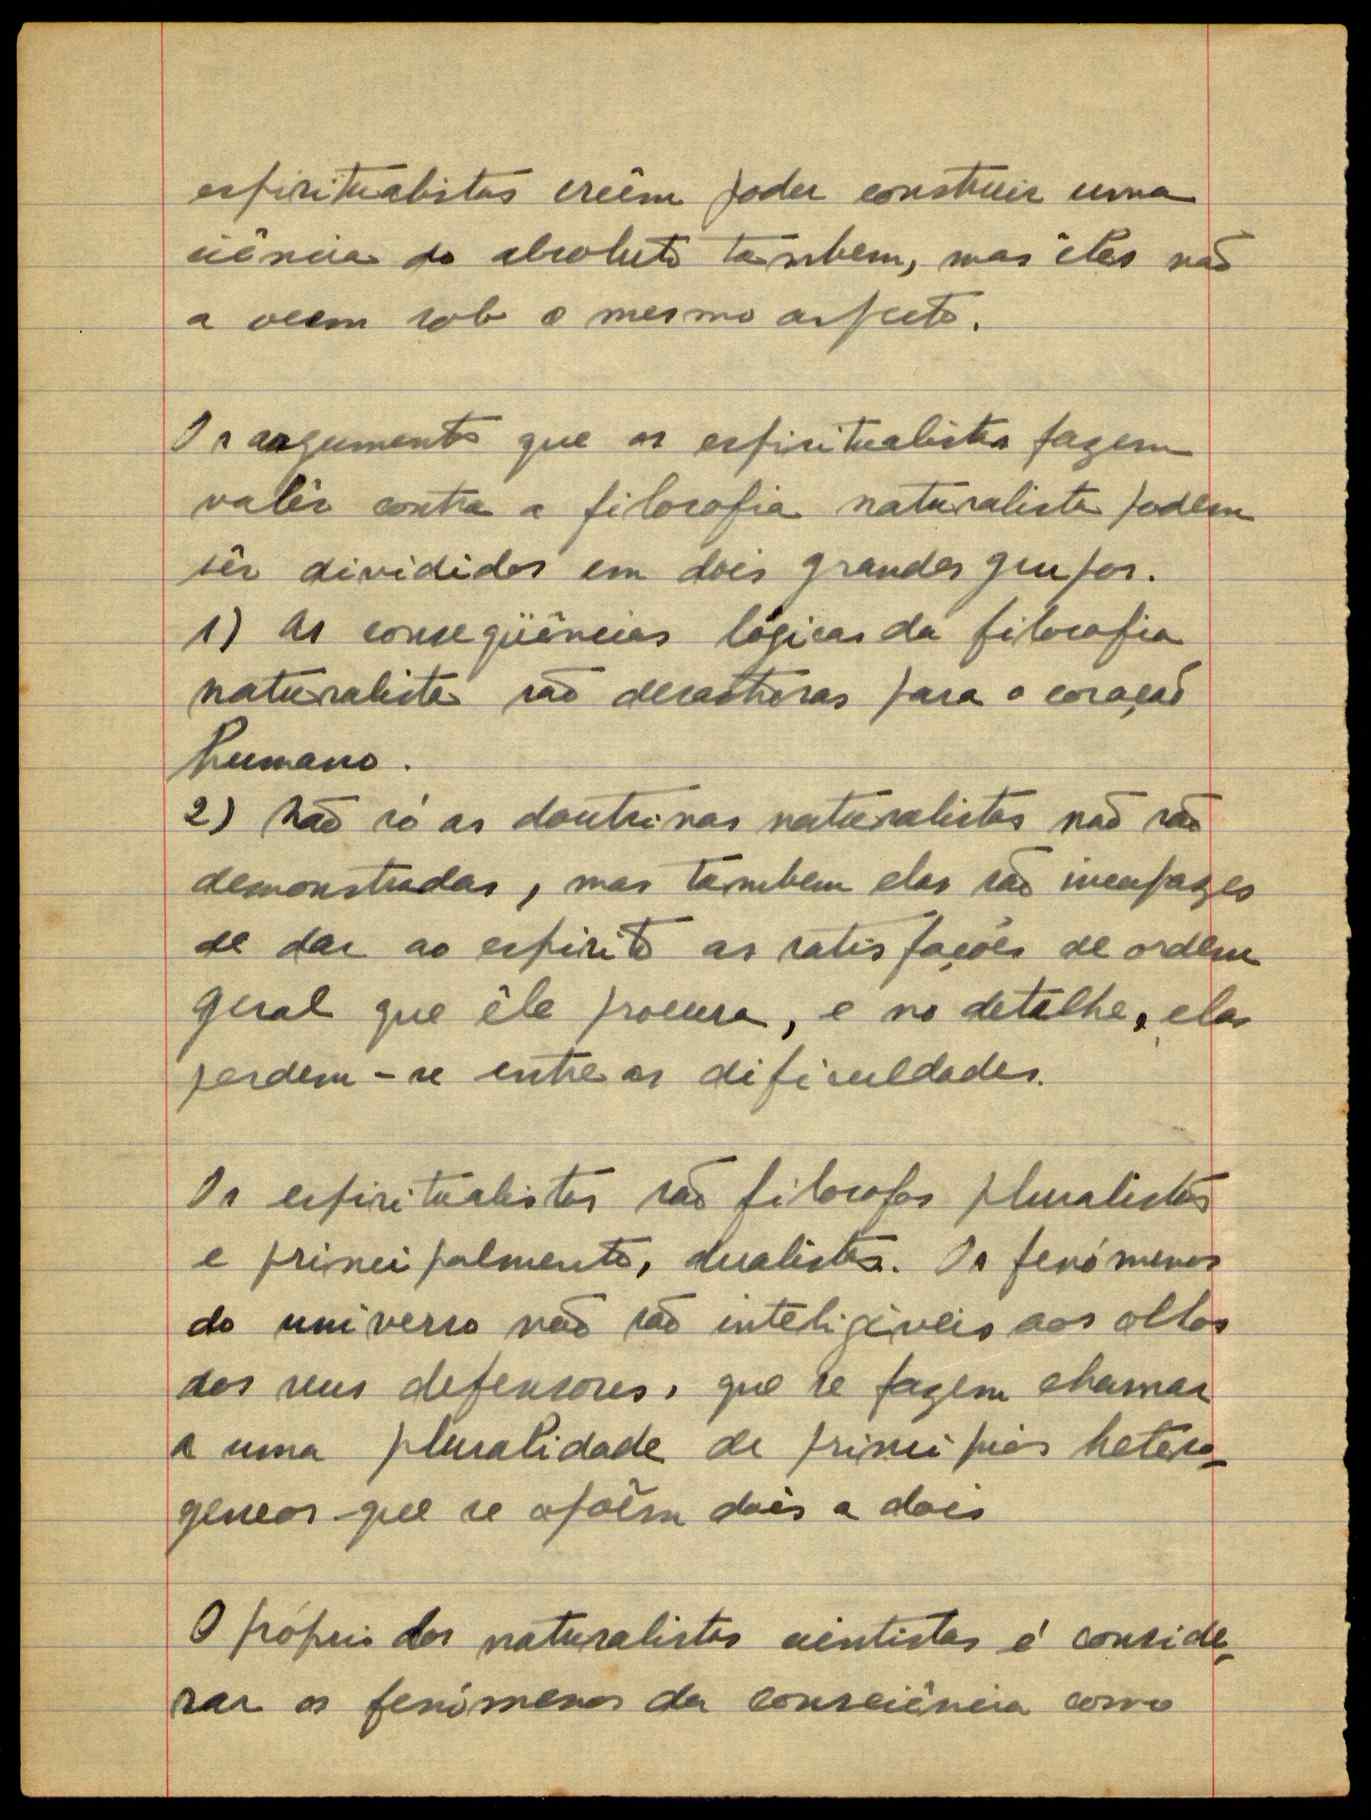 espiritualistas creêm poder construir uma
ciência do absoluto tambem, mas êles não
a veem sob o mesmo aspecto.
Os argumentos que os espiritualistas fazem
valêr contra a filosofia naturalista podem
sêr divididos em dois grandes grupos.
1) As conseqüências lógicas da filosofia
naturalista são desastrosas para o coração
humano.
2) Não só as doutrinas naturalistas não são
demonstradas, mas tambem elas são incapazes
de dar ao espirito as satisfações de ordem
geral que êle procura, e no detalhe, elas
perdem-se entre as dificuldades.
Os espiritualistas são filosofos pluralistas
e principalmente, dualistas. Os fenómenos
do universo não são inteligíveis aos olhos
dos seus defensores, que se fazem chamar
a uma pluralidade de principios hetero-
geneos que se opoêm dois a dois
O próprio dos naturalistas cientistas é conside-
rar os fenómenos da consciência como